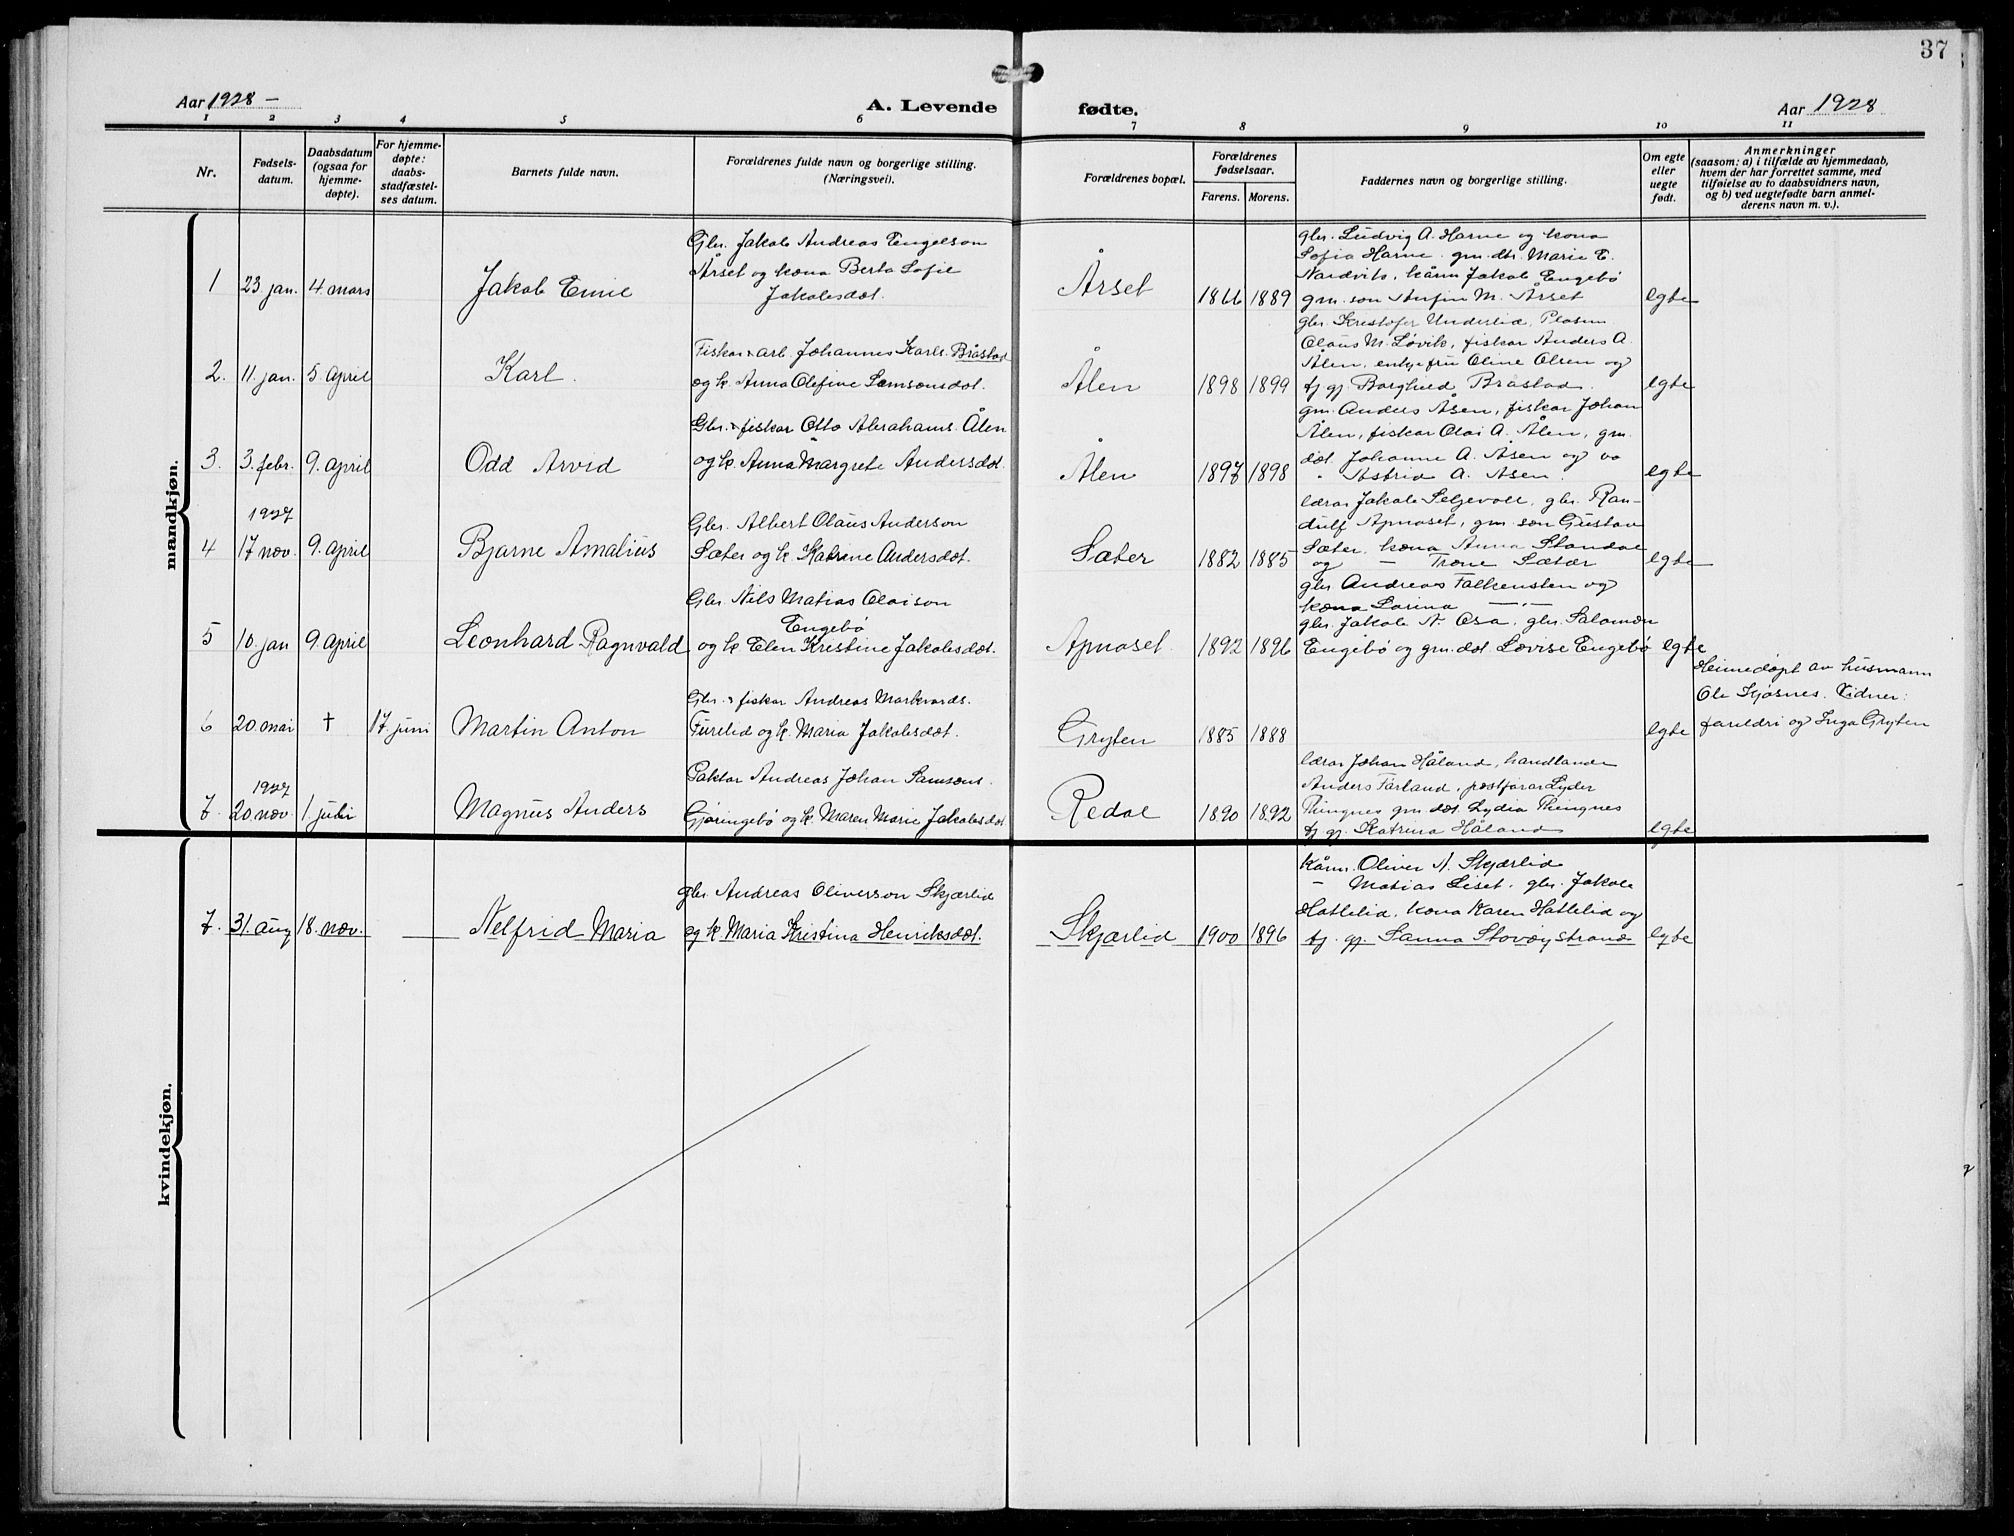 37
Aar 1928 –
A. Levende
fødte.
Aar 1928
1 2 3 4 5 6 7 8 9 10 11
Nr.
Fødsels-
datum.
Daabsdatum
(ogsaa for
hjemme-
døpte).
For hjemme-
døpte:
daabs-
stadfæstel-
ses datum.
Barnets fulde navn.
Forældrenes fulde navn og borgerlige stilling.
(Næringsvei).
Forældrenes bopæl.
Forældrenes
fødselsaar.
Farens. Morens.
Faddernes navn og borgerlige stilling.
Om egte
eller
uegte
født.
Anmerkninger
(saasom: a) i tilfælde av hjemmedaab,
hvem der har forrettet samme, med
tilføielse av to daabsvidners navn,
og b) ved uegtefødte barn anmel-
derens navn m. v.).
mandkjøn.
1 23 jan. 4 mars
Jakob Emil
Gbr. Jakob Andreas Engelson
Årset og kona Berta Sofie
Jakobsdot.
Årset
1866 1889
gbr. Ludvig A. Harne og kona
Sofia Harne. gm. dtr. Marie E.
Nardvik, kårm Jakob Engebø
gm. son Anfin M. Årset
egte
2. 11. jan. 5. april
Karl.
Fiskar & arb. Johannes Karls. Bråstad
og k. Anna Olefine Samsonsdot.
Ålen
1898 1899
gbr. Kristofer Underlid,
Olaus M. Løvik, fiskar Anders A.
Ålen, enkjefru Oline Olsen og
tj. gj. Borghild Bråstad.
egte
3. 3. febr. 9. april
Odd Arvid
Gbr. & fiskar Otto Abrahams. Ålen
og k. Anna Margrete Andersdot.
Ålen
1897 1898
gm. Anders Åsen, fiskar Johan
Ålen, fiskar Olai A. Ålen, gm.
dot. Johanne A. Åsen og
" Astrid A. Åsen.
egte
4 1927
17 nov. 9. april
Bjarne Amalius
Gbr. Albert Olaus Anderson
Sæter og k. Katrine Andersdot.
Sæter
1882 1885
lærar Jakob Seljevoll, gbr. Ran-
dulf Apnaset, gm. son Gustav
Sæter, kona Anna Standal
og — Trone Sætar
egte
5 10. jan 9. april
Leonhard Ragnvald
Gbr. Nils Matias Olaison
Engebø
og k. Elen Kristine Jakobsdot.
Apnaset
1892 1896
gbr. Andreas Falkensten og
kona Sarina —"—
gbr. Jakob N. Osa, gbr. Salomon
Engebø og gm. dot. Lovise Engebø
egte
6 20. mai † 17. juni
Martin Anton
Gbr. & fiskar Andreas Markvards.
Furelid og k. Maria Jakobsdot.
Gryten
1885 1888
egte
Heimedøpt av husmann
Ole Kjøsnes. Vidner:
foreldri og Inga Gryten
7. 1927
20. nov. 1. juli
Magnus Anders
Paktar Andreas Johan Samsons.
Gjøringebø og k. Maren Marie Jakobsdot
Redal
1890 1892
lærar Johan Håland, handlande
Anders Førland, postførar Lyder
Thingnes gm. dot. Lydia Thingnes
tj. gj. Katrina Håland
egte
kvindekjøn.
7. 31. aug 18. nov.
Nelfrid Maria
gbr. Andreas Oliverson Skjærlid
og k. Maria Kristina Henriksdot.
Skjærlid
1900 1896
Kårm. Oliver N. Skjærlid
– Matias Liset, gbr. Jakob
Hatlelid, kona Karen Hatlelid og
tj. gj. Sanna Stovøystrand
egte